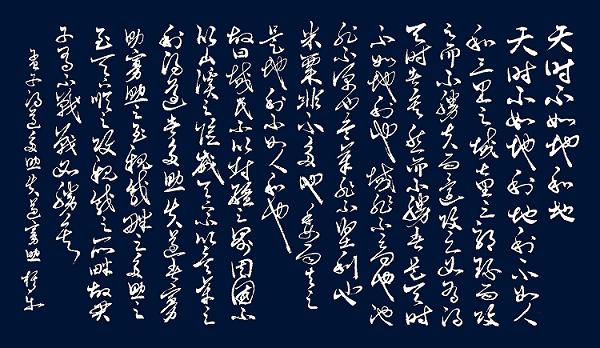 天时不如地利地
天时不如地利地利不如人
和三里之城七里之郭环而攻
之而不胜夫环而攻之必有得
天时者矣然而不胜者是天时
不如地利也城非不高也池
非不深也兵革非不坚利也
米粟非不多也委而去之
是地利不如人和也
故曰域民不以封疆之界固国不
以山溪之险威天下不以兵革之
利得道者多助失道者寡
助寡助之至亲戚畔之多助之
至天下顺之攻亲戚之所畔故君
子有不战战必胜矣
孟子得道多助失道寡助